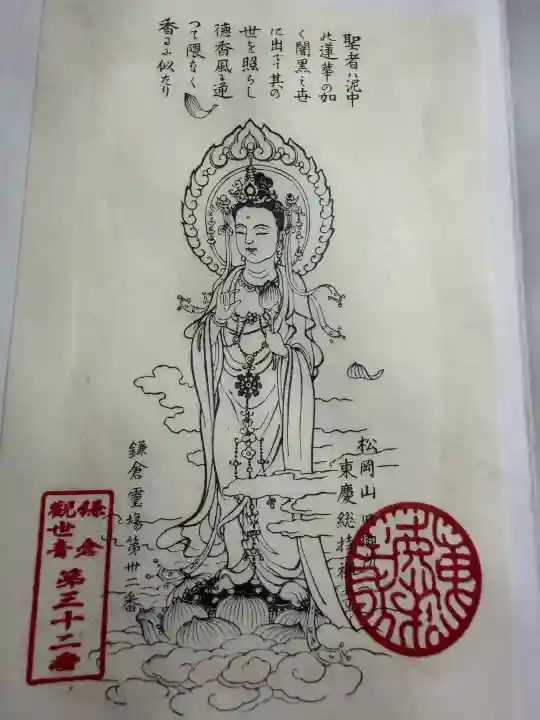 聖者ハ泥中
の蓮華の如
く闇黒之世
に出でて其の
世を照らし
徳香風に逆
つて隈なく
香るに似たり
松岡山
東慶総持禅
鎌倉霊場第卅二番
鎌倉
観世音
第三十二番